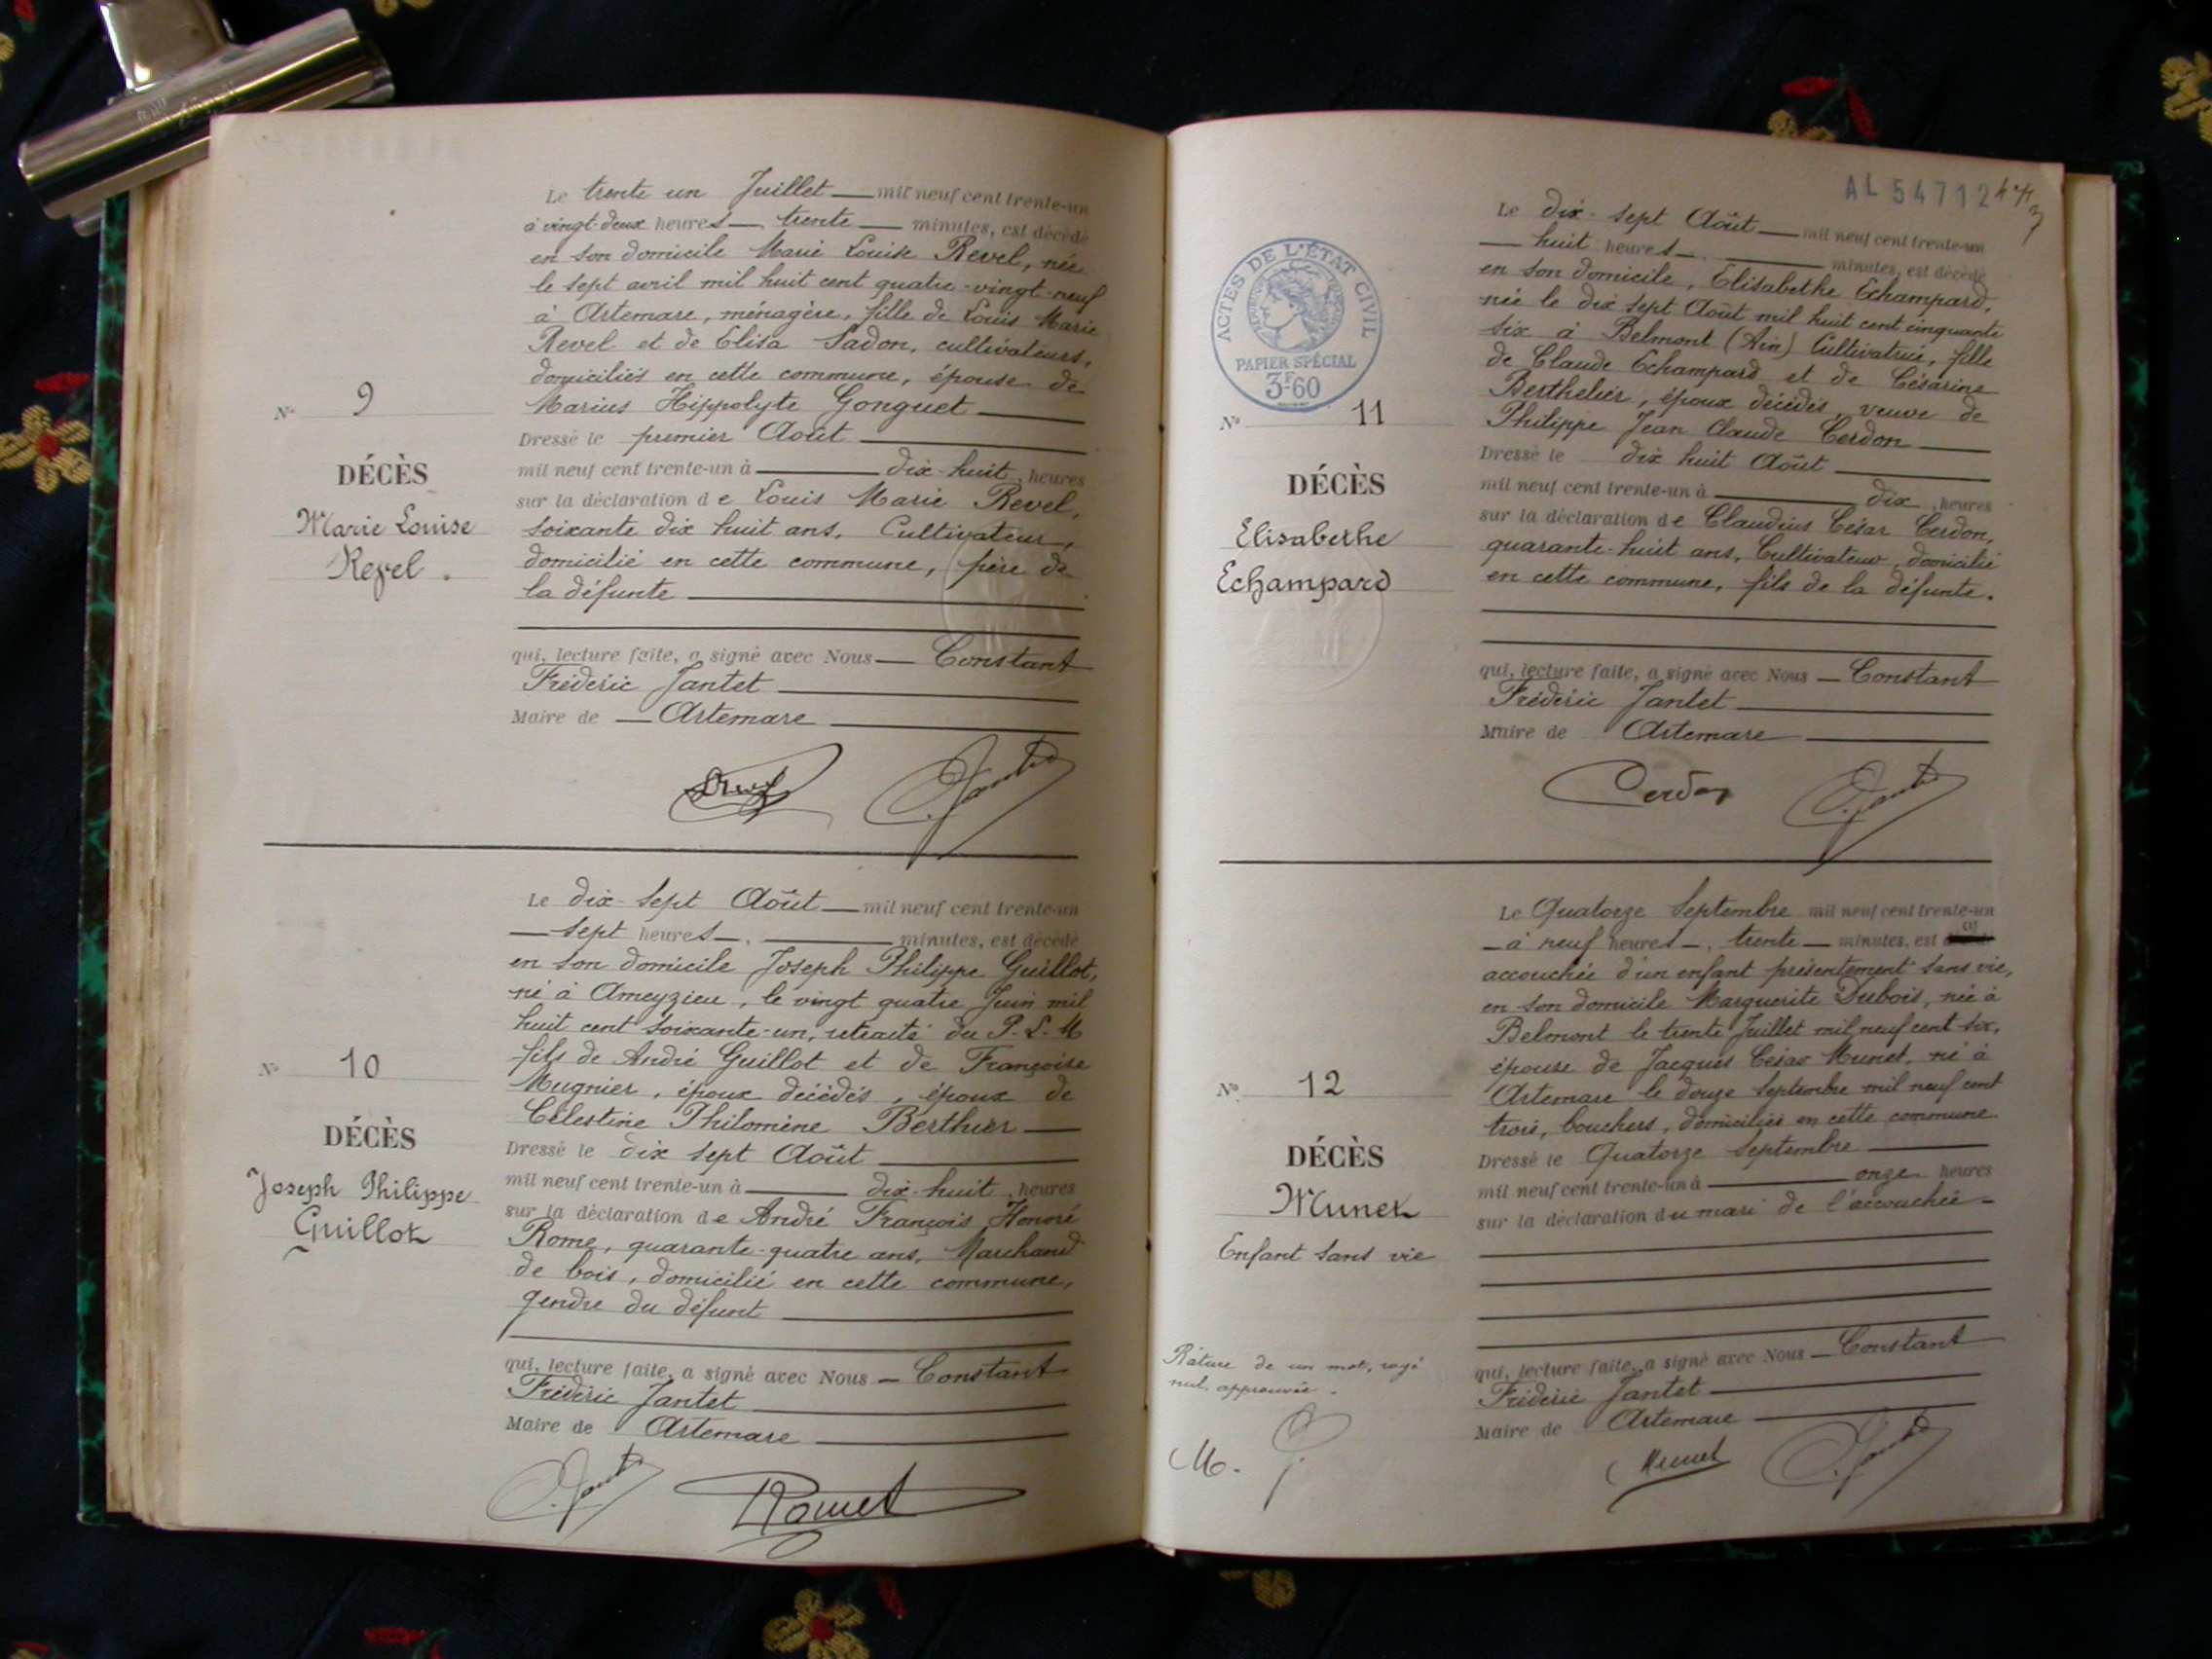 Le trente un Juillet mil neuf cent trente-un
à vingt-deux heures, trente minutes, est décédé
en son domicile Marie Louise Revel, née
le sept avril mil huit cent quatre-vingt-neuf
à Artemare, ménagère, fille de Louis Marie
Revel et de Elisa Sadon, cultivateurs,
domiciliés en cette commune, épouse de
Marius Hippolyte Gonguet
Dressé le premier Août
mil neuf cent trente-un à dix-huit heures
sur la déclaration de Louis Marie Revel,
soixante dix huit ans, Cultivateur,
domicilié en cette commune, père de
la défunte
qui, lecture faite, a signé avec Nous Constant
Fréderic Jantet
Maire de Artemare
N° 9
DÉCÈS
Marie Louise
Revel.
Le dix-sept Août mil neuf cent trente-un
sept heures, minutes, est décédé
en son domicile Joseph Philippe Guillot,
né à Ameyzieu, le vingt quatre Juin mil
huit cent soixante-un, retraité du P.L.M
fils de André Guillot et de Françoise
Mugnier, époux décédés, époux de
Célestine Philomène Berthier
Dressé le dix sept Août
mil neuf cent trente-un à dix-huit heures
sur la déclaration de André François Honoré
Rome, quarante-quatre ans, Marchand
de bois, domicilié en cette commune,
gendre du défunt
qui, lecture faite, a signé avec Nous Constant
Fréderic Jantet
Maire de Artemare
N° 10
DÉCÈS
Joseph Philippe
Guillot
AL 54712
ACTES DE L'ÉTAT CIVIL
PAPIER SPÉCIAL
3F60
Le dix-sept Août mil neuf cent trente-un
huit heures, minutes, est décédé
en son domicile, Elisabethe Echampard,
née le dix sept Août mil huit cent cinquante
six à Belmont (Ain) Cultivatrice, fille
de Claude Echampard et de Césarine
Berthelier, époux décédés, veuve de
Philippe Jean Claude Cerdon
Dressé le dix huit Août
mil neuf cent trente-un à dix heures
sur la déclaration de Claudius César Cerdon,
quarante-huit ans, Cultivateur, domicilié
en cette commune, fils de la défunte.
qui, lecture faite, a signé avec Nous Constant
Fréderic Jantet
Maire de Artemare
Cerdon
N° 11
DÉCÈS
Elisabethe
Echampard
Le Quatorze Septembre mil neuf cent trente-un
à neuf heures, trente minutes, est
accouchée d'un enfant présentement sans vie,
en son domicile Marguerite Dubois, née à
Belmont le trente Juillet mil neuf cent six,
épouse de Jacques César Munet, né à
Artemare le douze Septembre mil neuf cent
trois, bouchers, domiciliés en cette commune
Dressé le Quatorze Septembre
mil neuf cent trente-un à onze heures
sur la déclaration du mari de l'accouchée
qui, lecture faite, a signé avec Nous Constant
Fréderic Jantet
Maire de Artemare
Munet
N° 12
DÉCÈS
Munet
Enfant sans vie
Râture de un mot, rayé
nul, approuvée.
M.